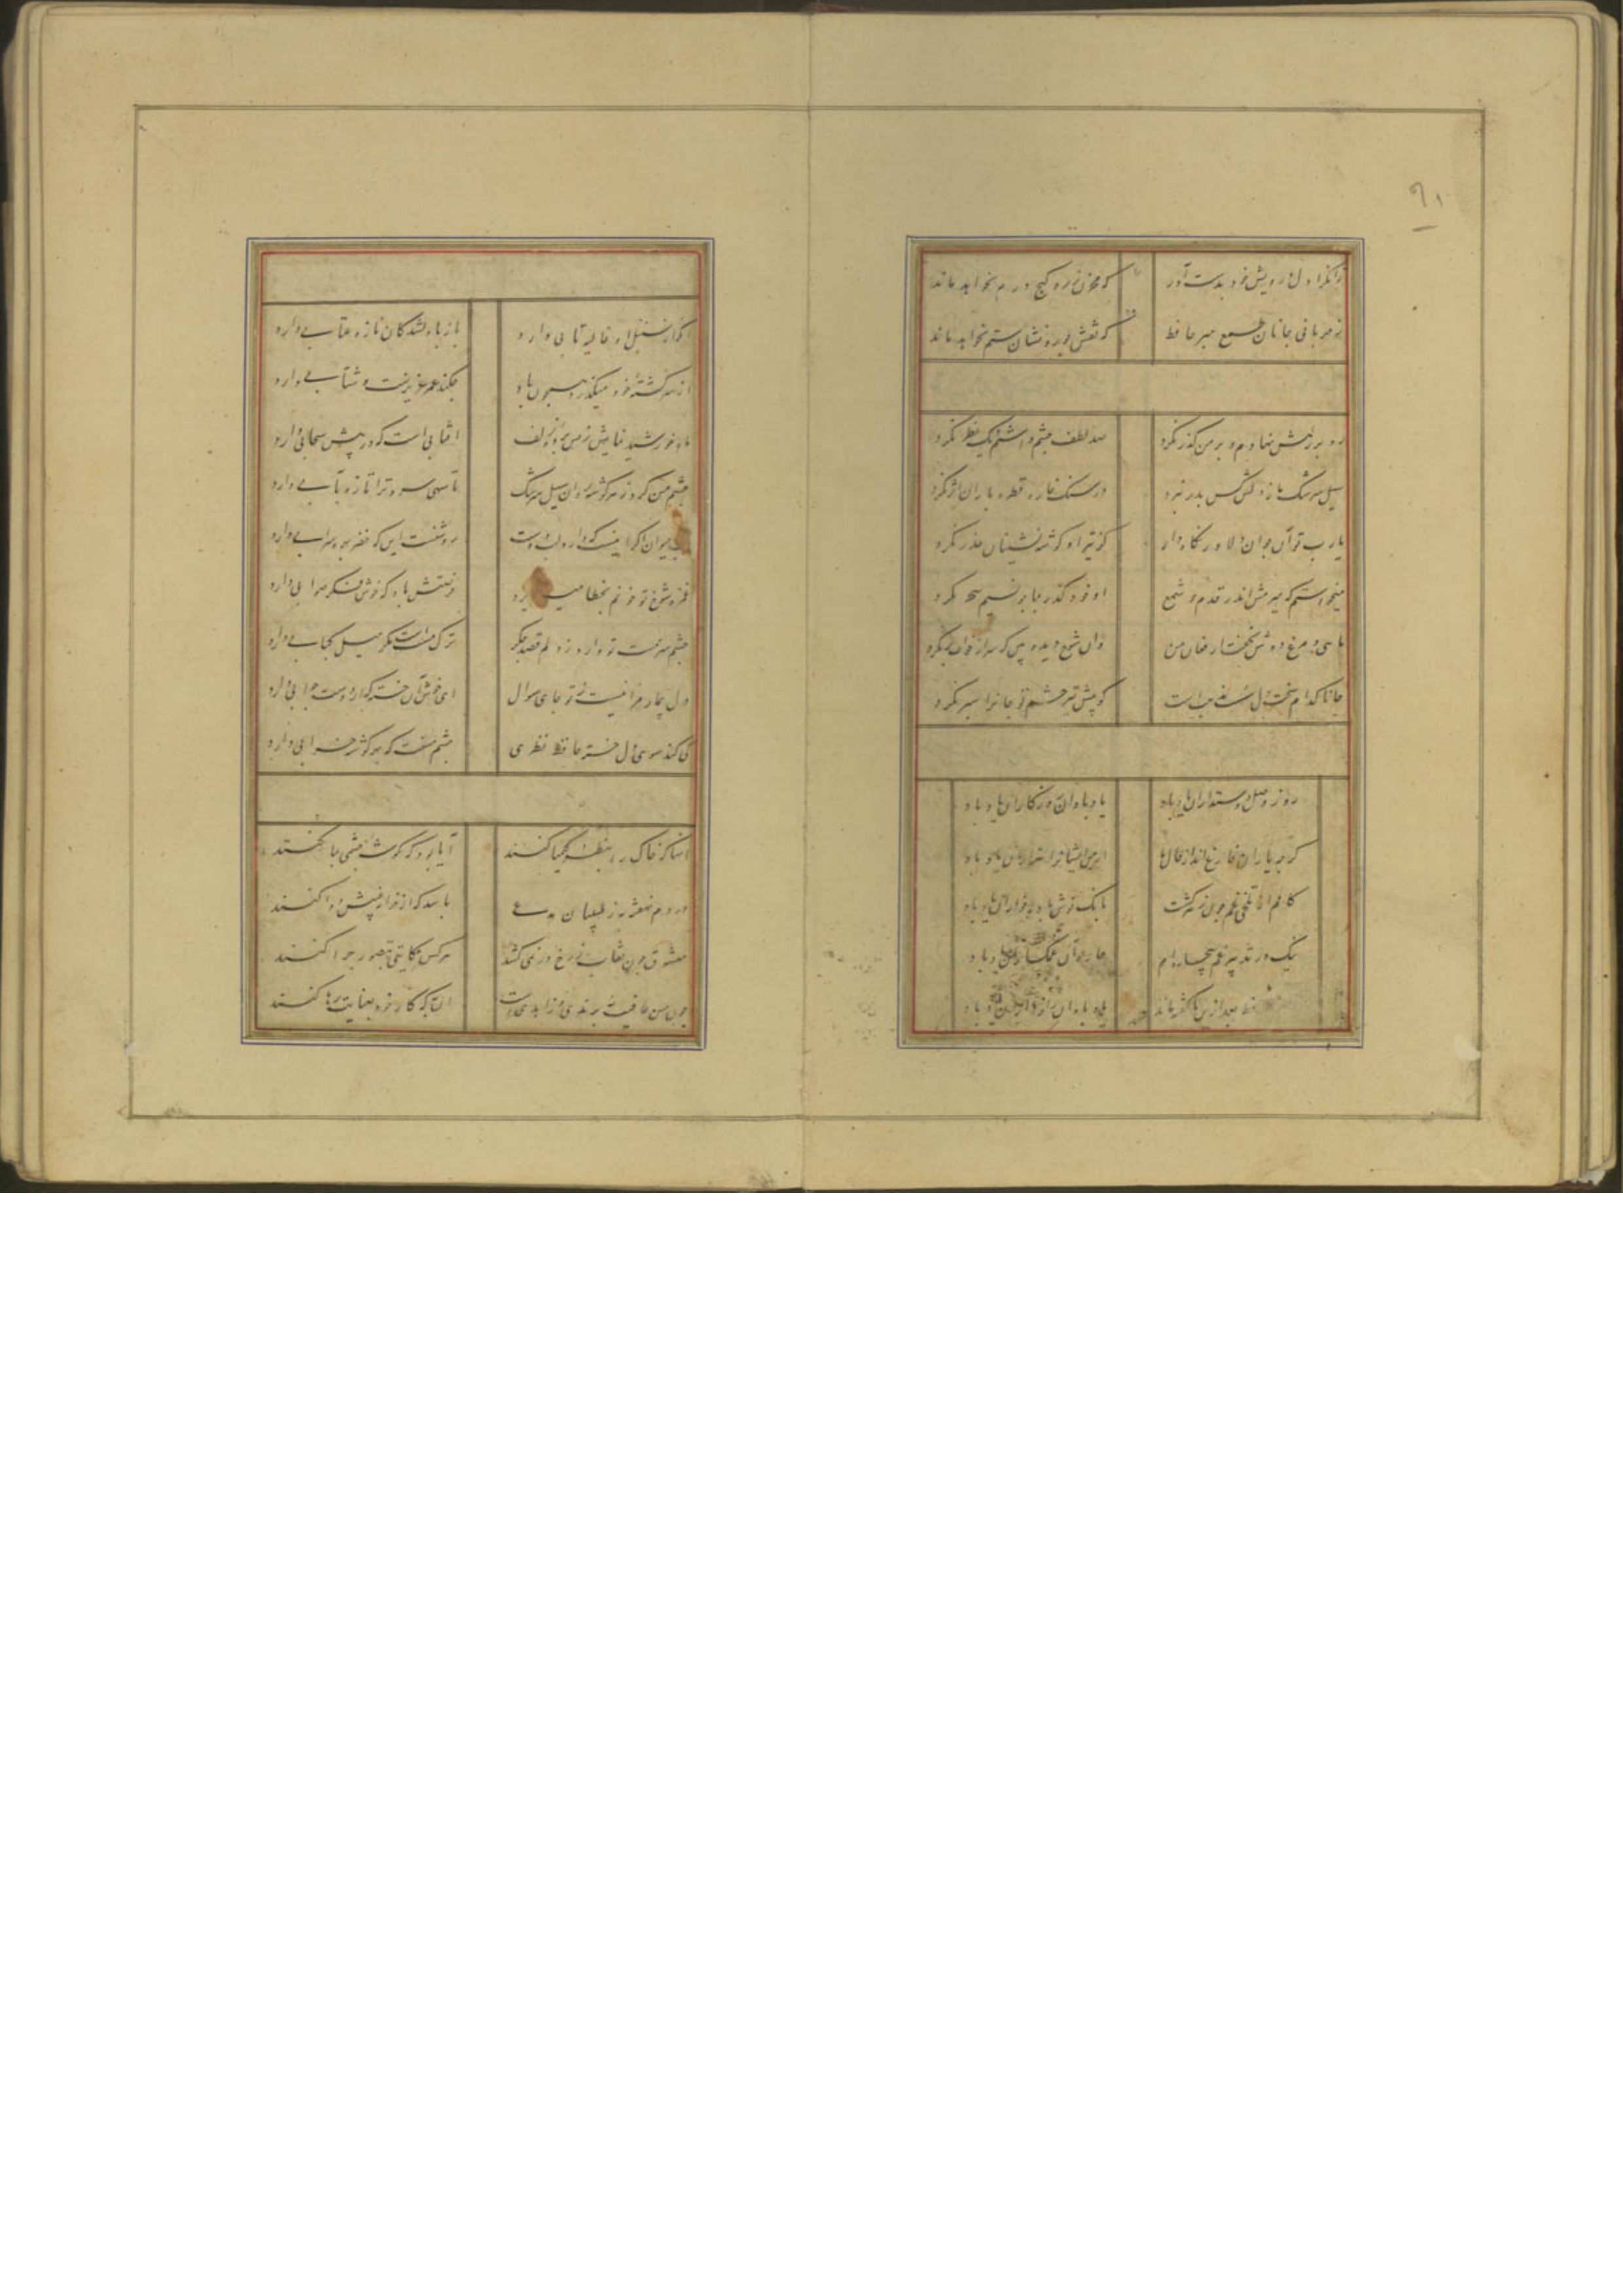 ۹۱
توانگرا دل درویش خود بدست آور که مخزن زر و گنج درم نخواهد ماند
ز مهربانی جانان طمع مبر حافظ که نقش جور و نشان ستم نخواهد ماند
رو بر رهش نهادم و بر من گذر نکرد صد لطف چشم داشتم و یک نظر نکرد
سیل سرشک ما ز دلش کین بدر نبرد در سنگ خاره قطره باران اثر نکرد
یا رب تو آن جوان دلاور نگاه دار کز تیر آه گوشه نشینان حذر نکرد
میخواستم که میرمش اندر قدم چو شمع او خود گذر بما چو نسیم سحر نکرد
ماهی و مرغ دوش نخفت از فغان من وان شوخ دیده بین که سر از خواب بر نکرد
جانا کدام سنگدل بی کفایتست کو پیش تیر خشم تو جانرا سپر نکرد
روز وصل دوستداران یاد باد یاد باد آن روزگاران یاد باد
گرچه یاران فارغ اند از حال ما از من ایشانرا هزاران یاد باد
کامم از تلخی غم چون زهر گشت بانگ نوش باده خواران یاد باد
نیک در تدبیر غم بیچاره ام چاره آن غمگساران یاد باد
بعد ازین ناگفته ماند یاد باد آن رازداران یاد باد
آنکه از سنبل او غالیه تابی دارد باز با دلشدگان ناز و عتابی دارد
از سر کشته خود میگذرد همچون باد چکند عمر عزیزست و شتابی دارد
ماه خورشید نمایش ز پس پرده زلف آفتابی است که در پیش سحابی دارد
چشم من کرد ز هر گوشه روان سیل سرشک تا سهی سرو ترا تازه بآبی دارد
آب حیوان اگر اینست که دارد لب دوست روشنست این که خضر بهره سرابی دارد
غمزه شوخ تو خونم بخطا میریزد فرصتش باد که خوش فکر صوابی دارد
چشم سرمست تو دارد ز دلم قصد جگر ترک مست است مگر میل کبابی دارد
دل بیمار مرا نیست ز تو جای سوال ای خوش آن خسته که از دوست جوابی دارد
کی کند سوی دل خسته حافظ نظری چشم مستت که بهر گوشه خرابی دارد
آنانکه خاک را بنظر کیمیا کنند آیا بود که گوشه چشمی بما کنند
دردم نهفته به ز طبیبان مدعی باشد که از خزانه غیبش دوا کنند
معشوق چون نقاب ز رخ در نمی کشد هر کس حکایتی بتصور چرا کنند
چون حسن عاقبت نه برندی و زاهدیست آن به که کار خود بعنایت رها کنند